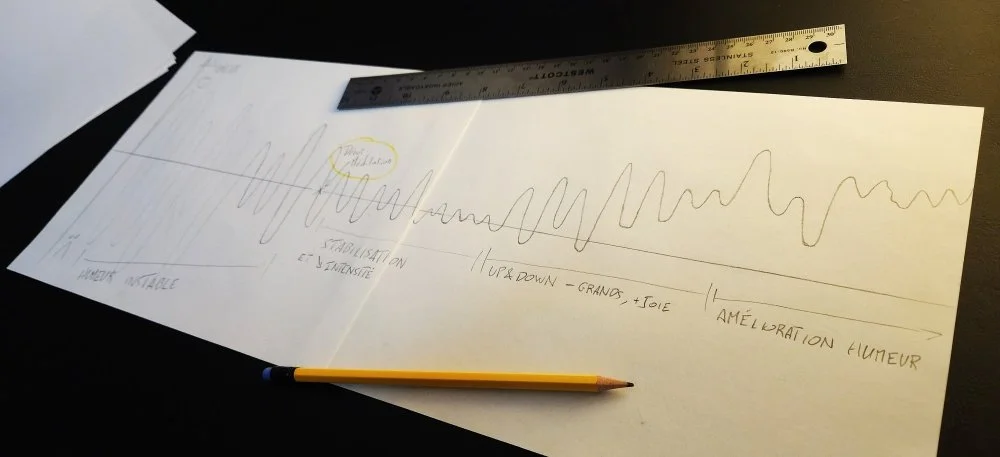 WESTCOTT
STAINLESS STEEL
Début
Méditation
HUMEUR INSTABLE
STABILISATION
ET ↘ INTENSITÉ
UP&DOWN – GRANDS, + JOIE
AMÉLIORATION HUMEUR